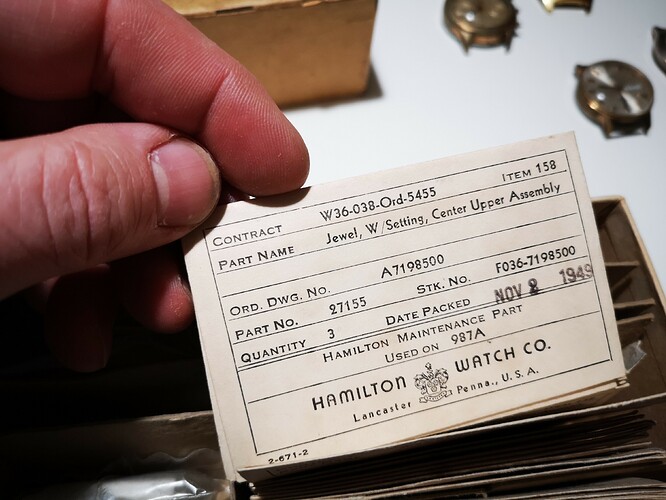 CONTRACT W36-038-Ord-5455 ITEM 158
PART NAME Jewel, W/Setting, Center Upper Assembly
ORD. DWG. NO. A7198500
PART NO. 27155 STK. NO. F036-7198500
QUANTITY 3 DATE PACKED NOV 2 1949
HAMILTON MAINTENANCE PART
USED ON 987A
HAMILTON WATCH CO.
Lancaster Penna., U. S. A.
2-671-2